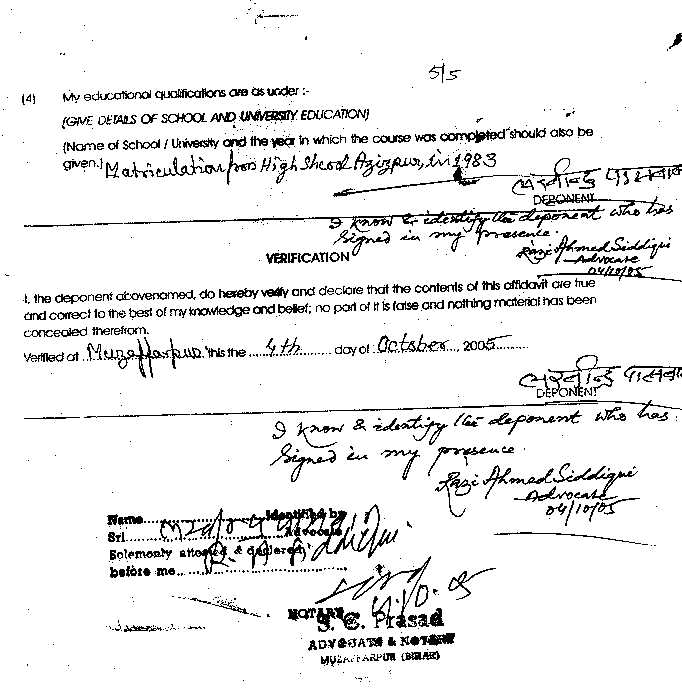 5/5
(4) My educational qualifications are as under :-
(GIVE DETAILS OF SCHOOL AND UNIVERSITY EDUCATION)
(Name of School / University and the year in which the course was completed should also be
given.) Matriculation from High Shcool Azizpur, in 1983
DEPONENT
I know & identify the deponent who has
Signed in my presence.
Razi Ahmed Siddiqui
Advocate
04/10/05
VERIFICATION
I, the deponent abovenamed, do hereby verify and declare that the contents of this affidavit are true
and correct to the best of my knowledge and belief; no part of it is false and nothing material has been
concealed therefrom.
Verified at Muzaffarpur this the 4th day of October, 2005
DEPONENT
I know & identify the deponent who has
Signed in my presence.
Razi Ahmed Siddiqui
Advocate
04/10/05
Name Identified by
Sri Advocate
Solemonly & declared
before me
NOTARY
S. C. Prasad
ADVOCATE & NOTARY
MUZAFFARPUR (BIHAR)